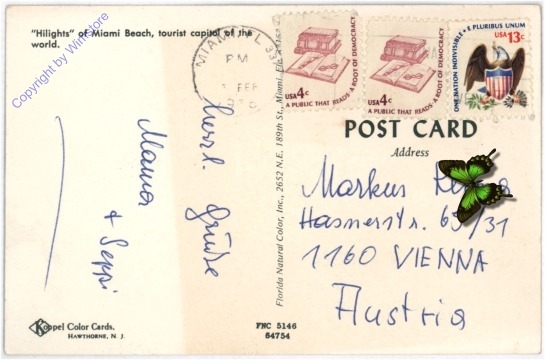 "Hilights" of Miami Beach, tourist capitol of the
world.
Copyright by Winstore
herzl. Grüße
Mama
+ Seppi
Koppel Color Cards.
HAWTHORNE, N. J.
FNC 5146
64754
Florida Natural Color, Inc., 2652 N.E. 189th St., Miami, Fla.
MIAMI, FL
PM
FEB
USA 4c
A PUBLIC THAT READS A ROOT OF DEMOCRACY
USA 4c
A PUBLIC THAT READS A ROOT OF DEMOCRACY
ONE NATION INDIVISIBLE • E PLURIBUS UNUM
USA
13c
POST CARD
Address
Markus
Hasnerstr. 63/31
1160 VIENNA
Austria